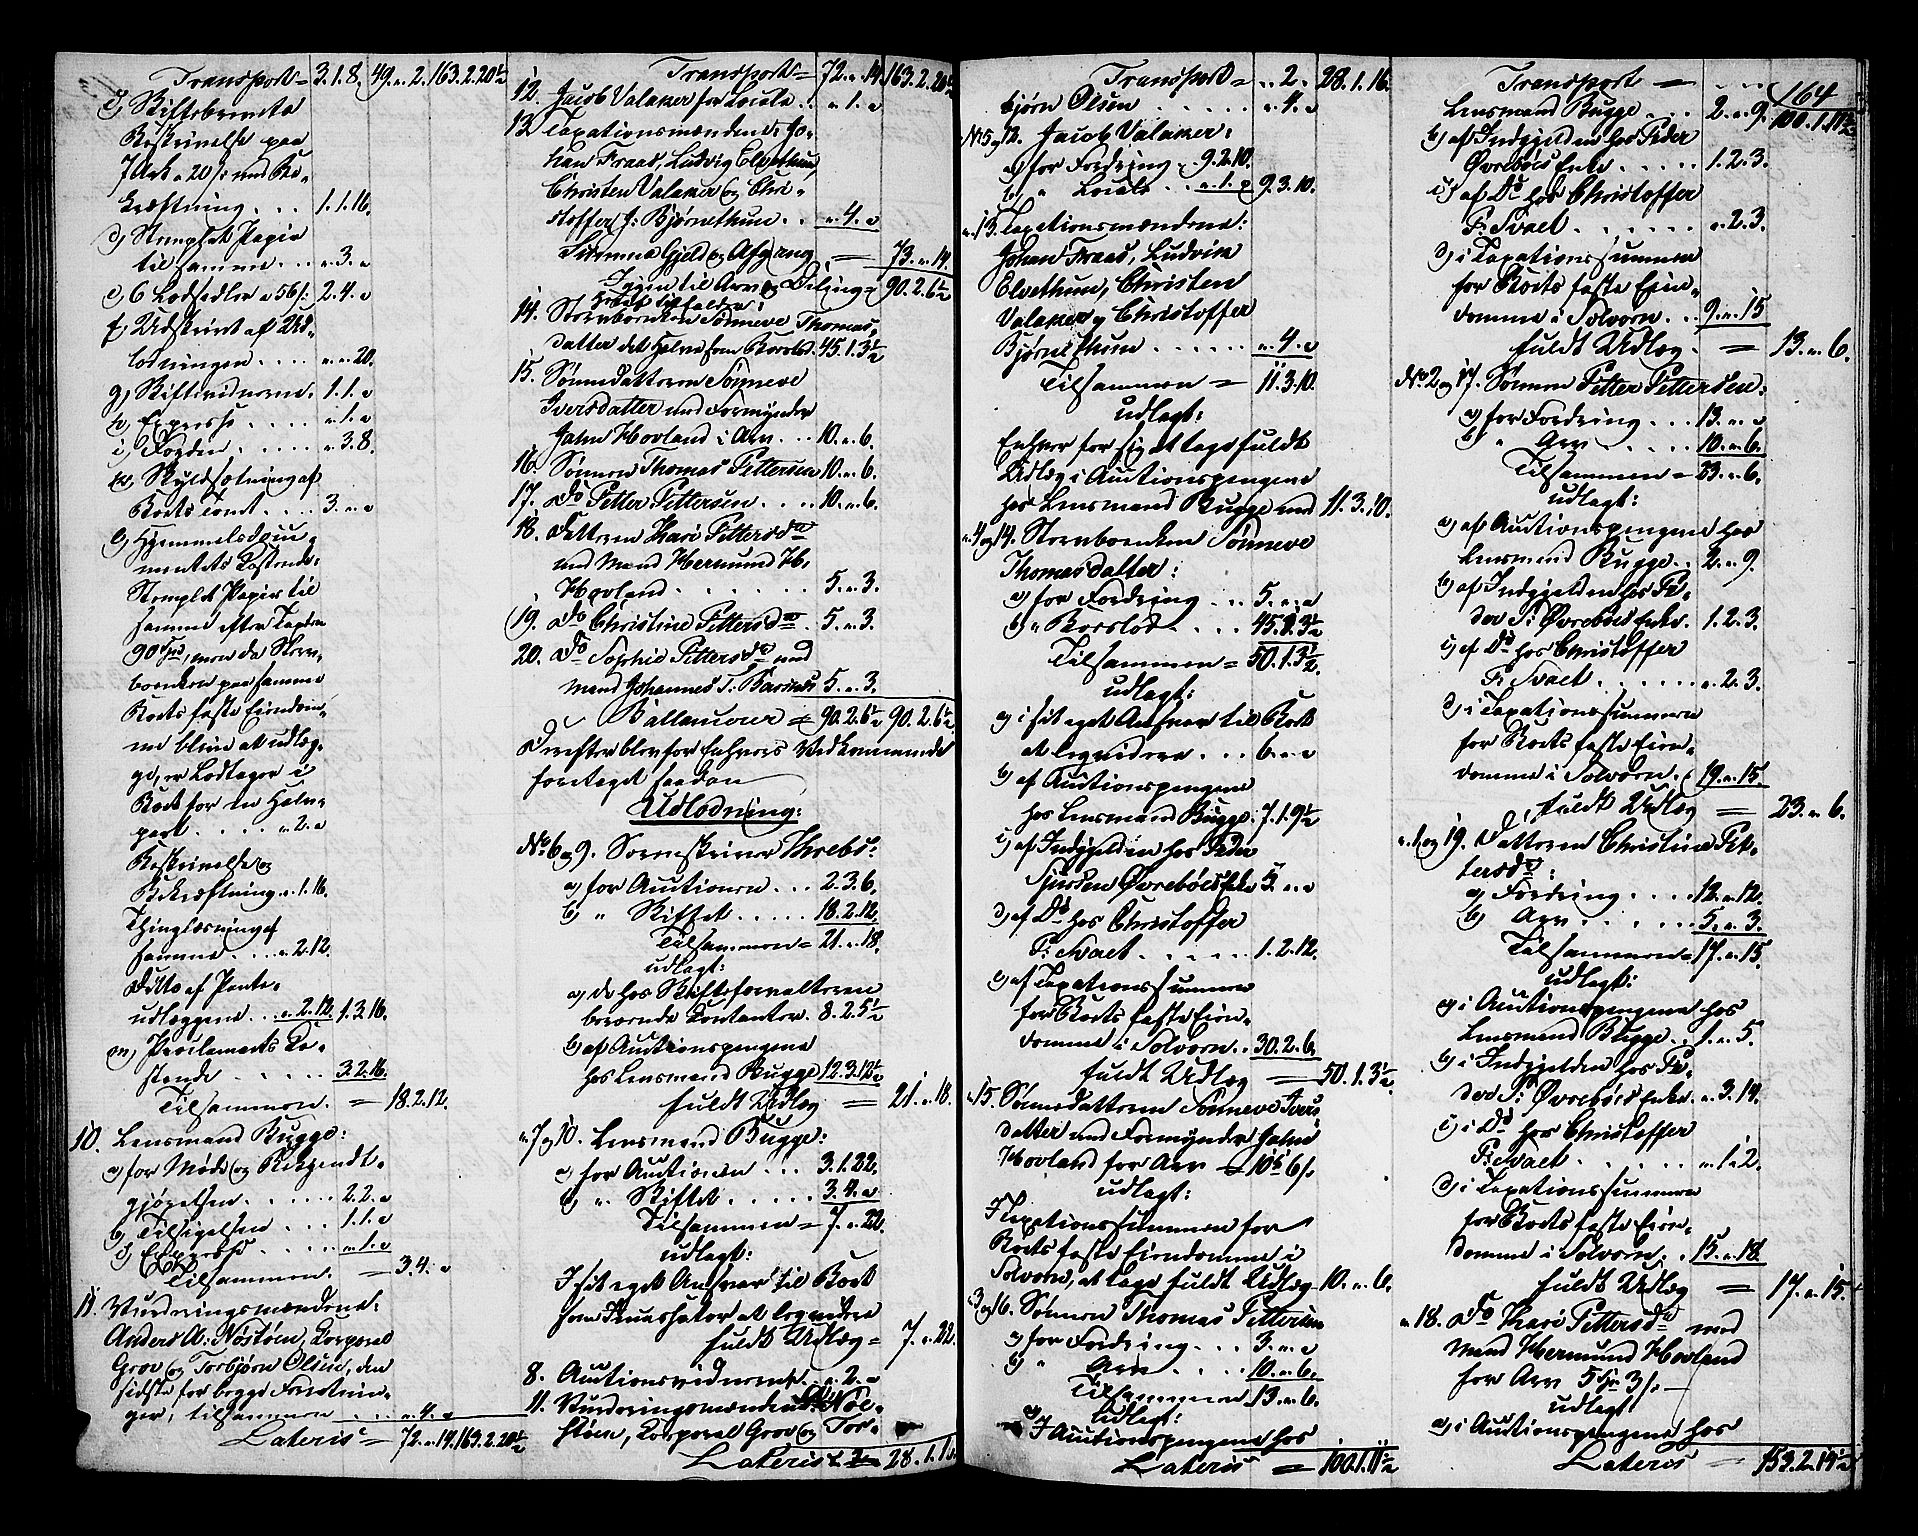 Transport = 3.1.8. 49. " 2. 163.2.20½
c) Skiftebrevets
Beskrivelse paa
7 Ark a 20 s: med Be-
kræftning . . . 1.1.16.
d) Stemplet Papir
til samme . . . " 3. "
e) 6 Lodsedler a 56 s: 2.4. "
f) Udskrivt af Ud-
lodningen . . . . " " 20.
g) Skiftevidnerne. 1.1. "
h) Expresse . . . . " 1. "
i) Foged . . . . " 3.8.
k) Skyldsætning af
Boets Tomt . . . 3. " "
l) Hjemmelsdocu-
mentets Kostende:
Stemplet Papir til
samme efter Taxten
90 Spd, men da Sterv-
boenken paa samme
Boets faste Eiendom-
me blive at udlæg-
ge, er Lodtager i
Boet for en Halv-
part . . . . " 2. "
Beskrivelse og
Bekræftning " 1.16.
Thinglæsning af
samme . . . " 2.12.
Ditto af Pante-
udlæggene . . " 2.12. 1.3.16.
m) Proclamaets Ko-
stende . . . . . 3.2.16.
Tilsammen. = 18.2.12.
10. Lensmand Bugge:
a) for Møde og Bekjendt-
gjørelsen . . . . . 2.2. "
b) Tilsigelsen . . . 1.1. "
c) Expresse . . . . " 1. "
Tilsammen. = 3.4. "
11. Vurderingsmændene:
Anders A: Nøstøen, Corporal
Grov og Torbjørn Olsen, den
sidste for begge Forretnin-
ger, tilsammen . . . " 4. "
Lateris = 72. " 14. 163.2.20½
Transport = 72. " 14. 163.2.20½
12. Jacob Valaker for Locale . . " 1. "
13. Taxationsmændene Jo-
han Fraas, Ludvig Elvethun,
Christen Valaker og Chri-
stoffer J: Bjørnethun . . " 4. "
Summa Gjeld og Afgang = 73. " 14.
Igjen til Arv og Deling = 90.2.6½
hvoraf tilfalder:
14. Stervboenken Sønneve Thomas-
datter det Halve som Boeslod. 45.1.3½
15. Sønnedatteren Sønneve
Iversdatter med Formynder
John Hovland i Arv . . . 10. " 6.
16. Sønnen Thomas Pettersen 10. " 6.
17. Do Petter Pettersen . . . 10. " 6.
18. Datteren Kari Pettersdr
med Mand Hermund H.
Hovland . . . . . . 5. " 3.
19. Do Christine Pettersdr . 5. " 3.
20. Do Sophie Pettersdr med
Mand Johannes T: Barsnes 5. " 3.
Ballancerer = 90.2.6½ 90.2.6½
Derefter blev for Enhvers Vedkommende
foretaget saadan
Udlodning:
No 6 og 9. Sorenskriver Krebs:
a) for Auctionen . . . 2.3.6.
b) " Skiftet . . . . . 18.2.12.
Tilsammen = 21. " 18.
udlagt:
a) de hos Skifteforvalteren
beroende Contanter. 8.2.5½
b) af Auctionspengene
hos Lensmand Bugge 12.3.12½
fuldt Udlæg = 21. " 18.
" 7 og 10. Lensmand Bugge:
a) for Auctionen . . . 3.1.22.
b) " Skiftet . . . . . 3.4. "
Tilsammen = 7. " 22.
udlagt:
I sit eget Ansvar til Boet
som Incassator at liqvidere
fuldt Udlæg = 7. " 22.
8. Auctionsvidnerne . . " 2. "
11. Vurderingsmændene A: Nøs-
støen, Corporal Grov og Tor-
Lateris " 2. " 28.1.16.
Transport = " 2. " 28.1.16.
bjørn Olsen . . . . . " 4. "
No 5 og 12. Jacob Valaker:
a) for Fordring . 9.2.10.
b) " Locale . . " 1. " 9.3.10.
" 13. Taxationsmændene:
Johan Fraas, Ludvig
Elvethun, Christen
Valaker og Christoffer
Bjørnethun . . . . . . " 4. "
Tilsammen = 11.3.10.
udlagt:
Enhver for sig at tage fuldt
Udlæg i Auctionspengene
hos Lensmand Bugge med 11.3.10.
" 4 og 14. Stervboenken Sønneve
Thomasdatter:
a) for Fordring . . . 5. " "
b) " Boeslod . . . . 45.1.3½
Tilsammen = 50.1.3½
udlagt:
a) i sit eget Ansvar til Boet
at liqvidere . . . 6. " "
b) af Auctionspengene
hos Lensmand Bugge. 7.1.9½
c) af Indgjelden hos Peder
Sjursen Øvrebøes Enke 5. " "
d) af Do hos Christoffer
P: Svaet . . . . . . 1.2.12.
e) af Taxationssummen
for Boets faste Eien-
domme i Solvorn . . 30.2.6.
fuldt Udlæg = 50.1.3½
" 15. Sønnedatteren Sønneve Ivers-
datter med Formynder John
Hovland for Arv = 10 6 s.
udlagt:
I Taxationssummen for
Boets faste Eiendomme i
Solvorn, at tage fuldt Udlæg 10. " 6.
" 3 og 16. Sønnen Thomas Pettersen
a) for Fordring . . . 3. " "
b) " Arv . . . 10. " 6.
Tilsammen 13. " 6.
Udlagt:
a) I Auctionspengene hos
Lateris = 100.1.11½
164
Transport = . . . 100.1.11½
Lensmand Bugge . . . 2. " 9.
b) af Indgjelden hos Peder
Øvrebøes Enke . . . . 1.2.3.
c) af Do hos Christoffer
P: Svaet . . . . . . . " 2.3.
d) i Taxationssummen
for Boets faste Eien-
domme i Solvorn . . 9. " 15
fuldt Udlæg . = 13. " 6.
No 2 og 17. Sønnen Petter Pettersen:
a) for Fordring . . 13. " "
b) " Arv . . . . 10. " 6.
Tilsammen = 23. " 6.
udlagt:
a) af Auctionspengene hos
Lensmand Bugge . . 2. " 9.
b) af Indgjelden hos Pe-
der S: Øvrebøes Enke. 1.2.3.
c) af Do hos Christoffer
P: Svaet . . . . . . . " 2.3.
d) i Taxationssummen
for Boets faste Eien-
domme i Solvorn . . 19. " 15.
fuldt Udlæg = 23. " 6.
" 1 og 19. Datteren Christine Pet-
tersdr:
a) Fordring . . . . 12. " 12.
b) Arv . . . . . . 5. " 3.
Tilsammen = 17. " 15.
udlagt:
a) i Auctionspengene hos
Lensmand Bugge . . 1. " 5.
b) i Indgjelden hos Pe-
der S: Øvrebøes Enke. " 3.14.
c) i Do hos Christoffer
P: Svaet . . . . . . " 1.2.
d) i Taxationssummen
for Boets faste Eien-
domme i Solvorn . . 15. " 18.
fuldt Udlæg = 17. " 15.
" 18. Do Kari Pettersdr med
Mand Hermund Hovland
for Arv 5 Spd 3 s. —
udlagt
a) i Auctionspengene hos
Lateris = 153.2.14½